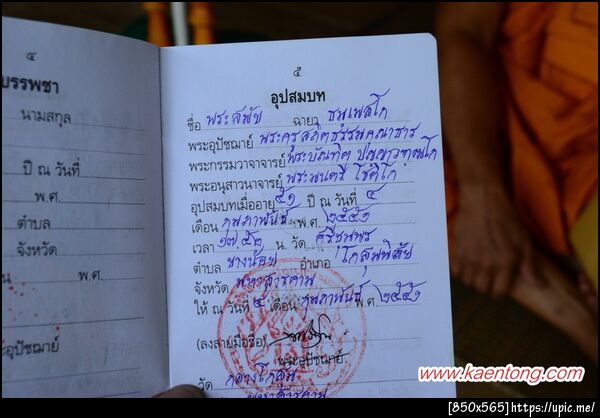 ๔
บรรพชา
นามสกุล
ปี ณ วันที่
พ.ศ.
ตำบล
จังหวัด
พ.ศ.
๕
อุปสมบท
ชื่อ พระสพัย ฉายา
พระอุปัชฌาย์ พระครู
พระกรรมวาจาจารย์ พระบัณฑิต
พระอนุสาวนาจารย์ พระมนตรี โชติโก
อุปสมบทเมื่ออายุ ๕๑ ปี ณ วันที่ ๔
เดือน กุมภาพันธ์ พ.ศ. ๒๕๕๑
เวลา ๑๗.๕๒ น. วัด ศรีชมพร
ตำบล บางน้อย อำเภอ โกสุมพิสัย
จังหวัด มหาสารคาม
ให้ ณ วันที่ ๔ เดือน กุมภาพันธ์ พ.ศ. ๒๕๕๑
(ลงลายมือชื่อ)
พระอุปัชฌาย์
วัด กลางโกสุม
มหาสารคาม
www.kaentong.com
[850x565]https://upic.me/